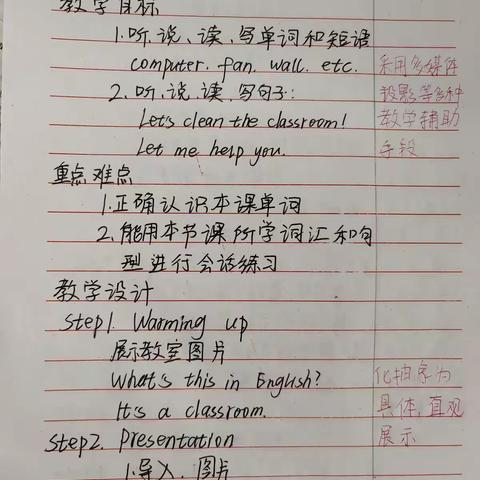 教学目标
1.听、说、读、写单词和短语
computer. fan. wall. etc.
2.听、说、读、写句子:
Let's clean the classroom!
Let me help you.
采用多媒体
投影等各种
教学辅助
手段
重点难点
1.正确认识本课单词
2.能用本节课所学词汇和句
型进行会话练习
教学设计
Step1. Warming up
展示教室图片
What's this in English?
It's a classroom.
化抽象为
具体,直观
展示
Step2. Presentation
1.导入、图片